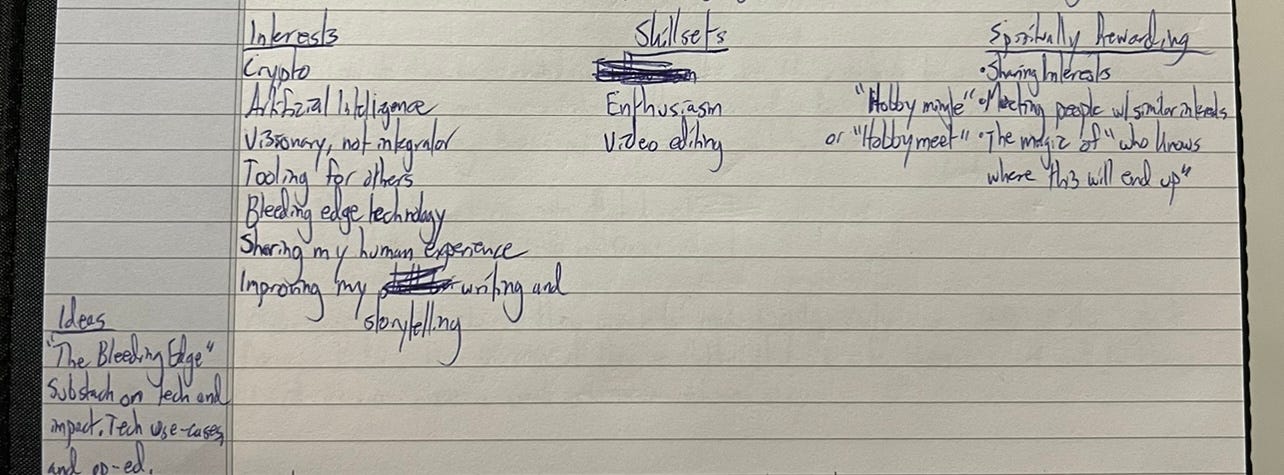 Interests
Crypto
Artificial Intelligence
Visionary, not integrator
Tooling for others
Bleeding edge technology
Sharing my human experience
Improving my writing and
storytelling
Skillsets
Enthusiasm
Video editing
Spiritually Rewarding
•Sharing Interests
"Hobby mingle" •Meeting people w/ similar interests
or "Hobbymeet" •The magic of "who knows
where this will end up"
Ideas
"The Bleeding Edge"
Substack on tech and
impact. Tech use-cases,
and op-ed.